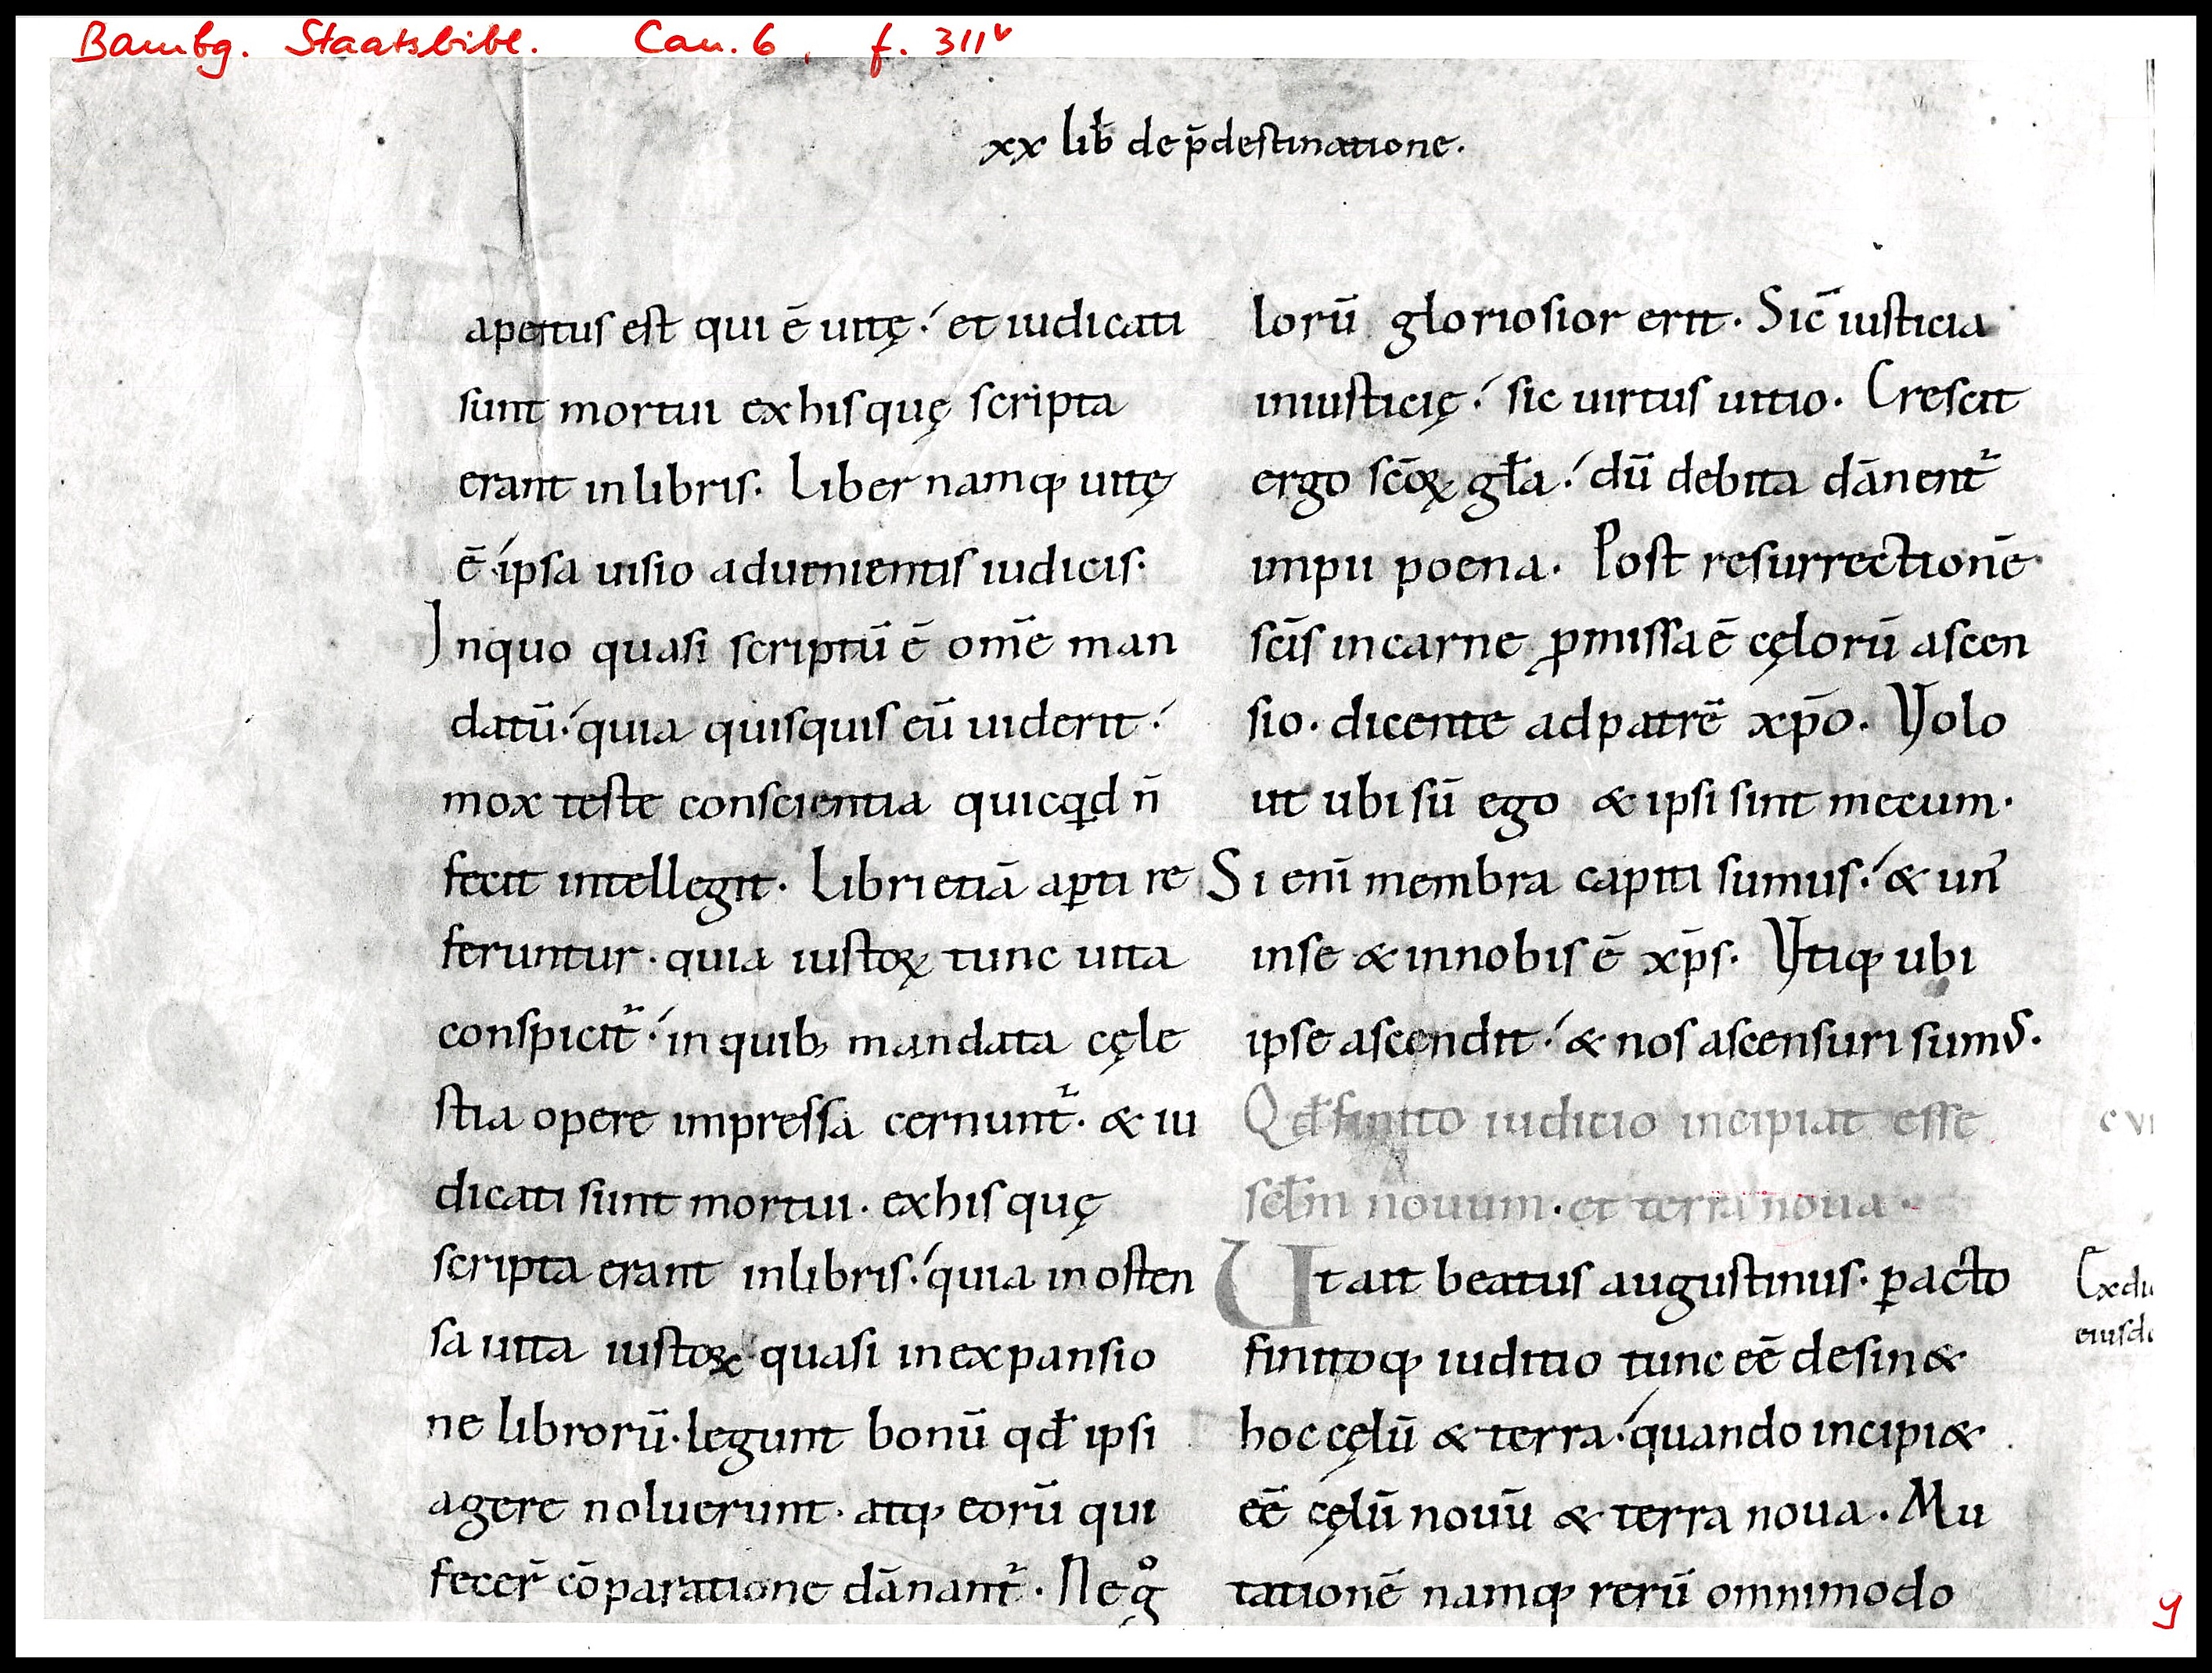 Bambg. Staatsbibl. Can. 6, f. 311v
xx lib̄ de p̄destinatione.
apertus est qui ē uitę·́ et iudicati
sunt mortui exhis quę scripta
erant inlibris. Liber namq; uitę
ē·́ ipsa uisio aduenientis iudicis.
Inquo quasi scriptū ē om̄e man
datū·́ quia quisquis eū uiderit·́
mox teste conscientia quicqd n̄
fecit intellegit. Libri etiā ap̲ti re
feruntur· quia iustoꝝ tunc uita
conspicit᷑·́ in quib; mandata cęle
stia opere impressa cernunt᷑· & iu
dicati sunt mortui· exhis quę
scripta erant inlibris·́ quia in osten
sa uita iustoꝝ· quasi inexpansio
ne librorū· legunt bonū qd̄ ipsi
agere noluerunt· atq; eorū qui
fecer̄ cōparatione dānant᷑. Negͦ
lorū gloriosior erit. Sic̄ iusticia
iniusticię·́ sic uirtus uitio. Crescit
ergo sc̄oꝝ gła·́ dū debita dānent᷑
impii poena. Post resurrectionē
sc̄is incarne ꝓmissa ē cęlorū ascen
sio· dicente adpatrē xp̄o. Volo
ut ubi sū ego & ipsi sint mecum.
Si eni̅ membra capiti sumus·́ & un᷒
inse & innobis ē xp̄s. Vtiq; ubi
ipse ascendit·́ & nos ascensuri sumꝰ.
Qd̄ finito iudicio incipiat esse
scl̄m nouum· et terra noua.
Ut ait beatus augustinus· ꝑacto
finitoq; iuditio tunc eē desin&
hoc cęlū & terra·́ quando incipi&
eē cęlū nouū & terra noua. Mu
tationē namq; rerū omnimodo
c vi
Exdu
eiusde
y